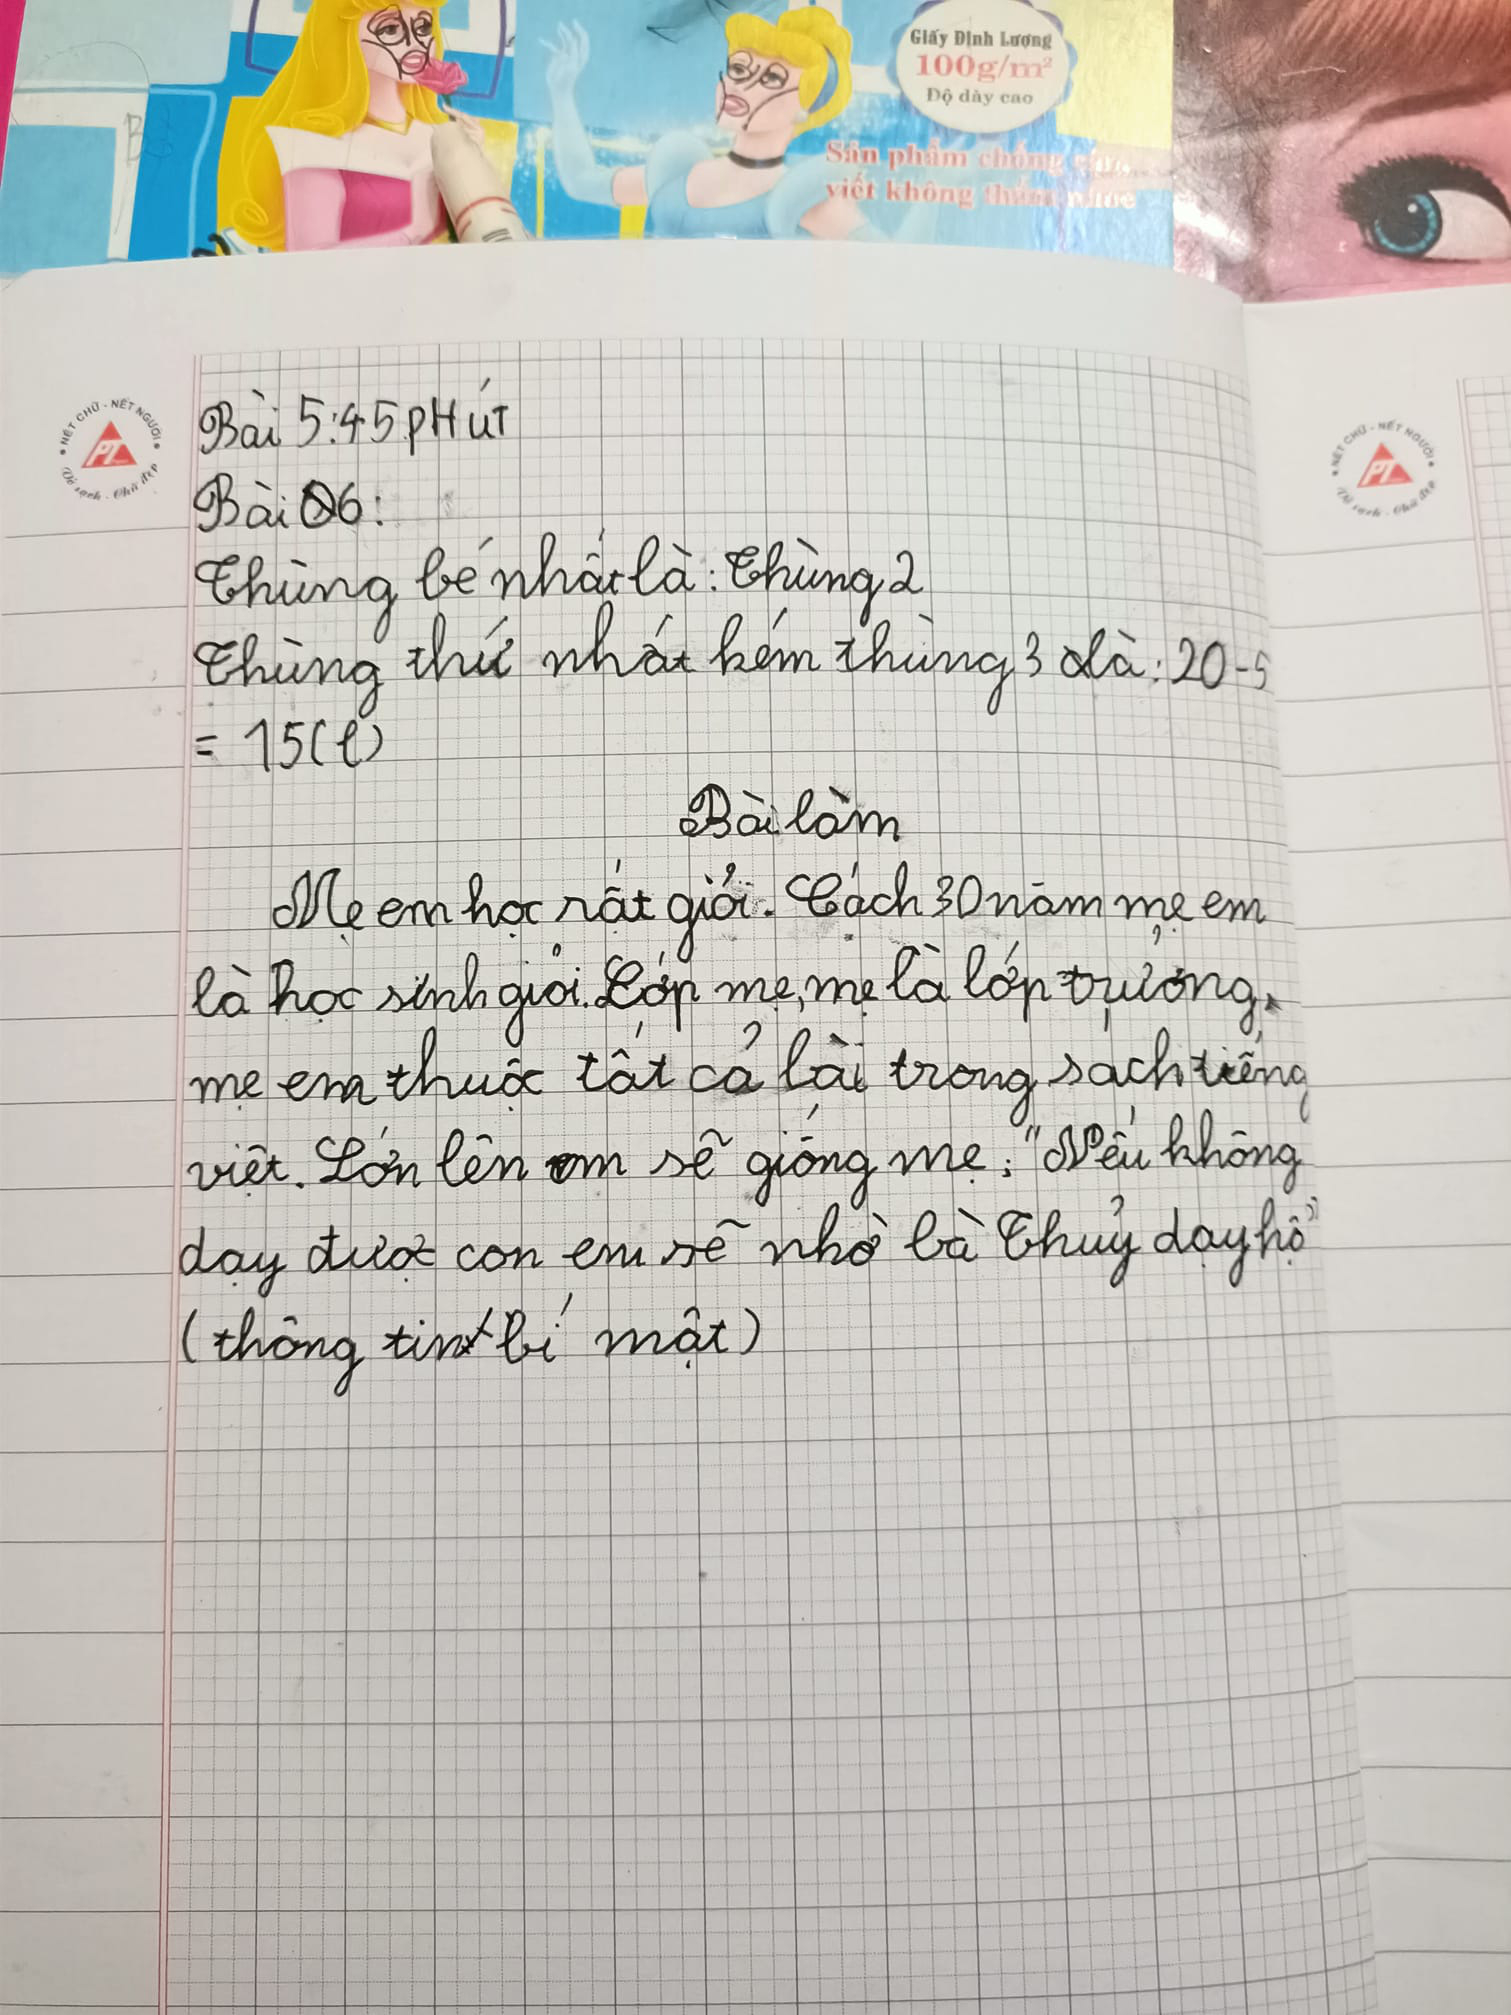 Giấy Định Lượng
100g/m²
Độ dày cao
Sản phẩm chống
viết không thấm nhòe
NÉT CHỮ - NẾT NGƯỜI
PT
Vở sạch - Chữ đẹp
NÉT CHỮ - NẾT NGƯỜI
PT
Vở sạch - Chữ đẹp
Bài 5:45 pHÚT
Bài 6:
Thùng bé nhất là: Thùng 2
Thùng thứ nhất kém thùng 3 là: 20-5
= 15(l)
Bài làm
Mẹ em học rất giỏi. Cách 30 năm mẹ em
là học sinh giỏi. Lớp mẹ, mẹ là lớp trưởng,
mẹ em thuộc tất cả bài trong sách tiếng
việt. Lớn lên em sẽ giống mẹ: "Nếu không
dạy được con em sẽ nhờ bà Thuỷ dạy hộ"
(thông tin bí mật)